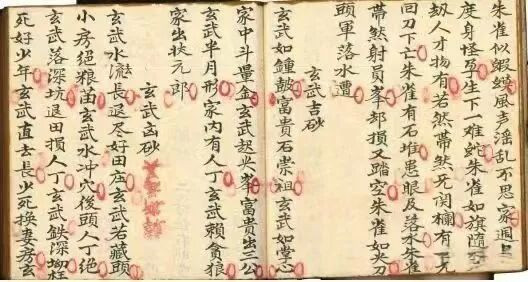 朱雀似蝦蟆風声淫乱不思家週
度身怪孕生下一難蛇朱雀如旗隨空
劫人才物有若然帶然无関欄有一无
回刀下亡朱雀有石堆患眼及落水朱雀
帶然射員峯却損又踏空朱雀如尖刀
頭軍落水遭
玄武吉砂
玄武如鍾皷富貴石崇祖玄武如掌心
家中斗量金玄武起尖峯富貴出三公
玄武半月形家內有人丁玄武賴貪狼
家出状元郎
玄武凶砂
玄武水流長退尽好田庄玄武若藏頭
小房絕粮苗玄武水冲穴後頭人丁絕
玄武落深坑退田損人丁玄武鉄深坳枉
死好少年玄武直去長少死換妻房玄